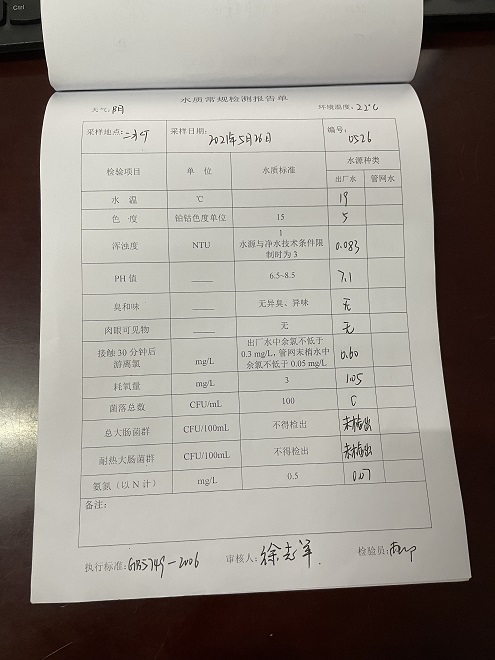 Ctrl
水质常规检测报告单
天气: 阴 环境温度: 22℃
采样地点: 二水厂 采样日期: 2021年5月26日 编号: 0526
检验项目 单 位 水质标准 水源种类
出厂水 管网水
水 温 ℃ 19
色 度 铂钴色度单位 15 5
浑浊度 NTU 1 0.083
水源与净水技术条件限
制时为 3
PH 值 —— 6.5~8.5 7.1
臭和味 —— 无异臭、异味 无
肉眼可见物 —— 无 无
接触 30 分钟后
游离氯 mg/L 出厂水中余氯不低于 0.60
0.3 mg/L, 管网末梢水中
余氯不低于 0.05 mg/L
耗氧量 mg/L 3 1.05
菌落总数 CFU/mL 100 0
总大肠菌群 CFU/100mL 不得检出 未检出
耐热大肠菌群 CFU/100mL 不得检出 未检出
氨氮(以 N 计) mg/L 0.5 0.07
备注:
执行标准: GB5749-2006 审核人: 检验员: